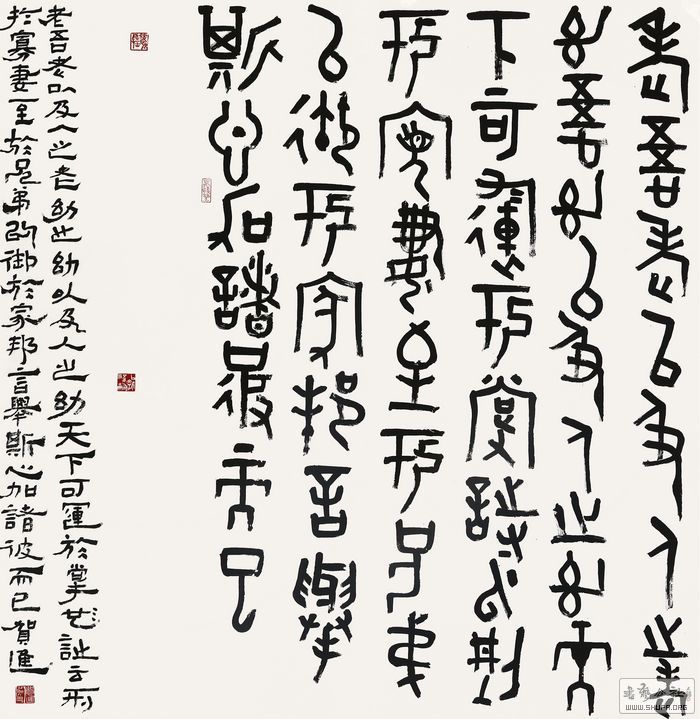 老吾老以及人之老
幼吾幼以及人之幼天
下可運於掌詩云刑
於寡妻至於兄弟
以御於家邦言舉
斯心加諸彼而已
老吾老以及人之老幼幼以及人之幼天下可運於掌詩云刑
於寡妻至於兄弟以御於家邦言舉斯心加諸彼而已賀進
WWW.SHUFA.ORG